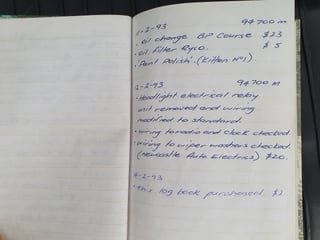 11-2-93 94700 m
· Oil change BP Course $23
· Oil Filter Ryco. $5
· Paint Polish. (Kitten No1).
12-2-93 94700 M
· Headlight electrical relay
unit removed and wiring
modified to standard.
· wiring to radio and clock checked.
· wiring to wiper washers checked.
(Newcastle Auto Electrics) $20.
14-2-93
· This log book purchased. $2.